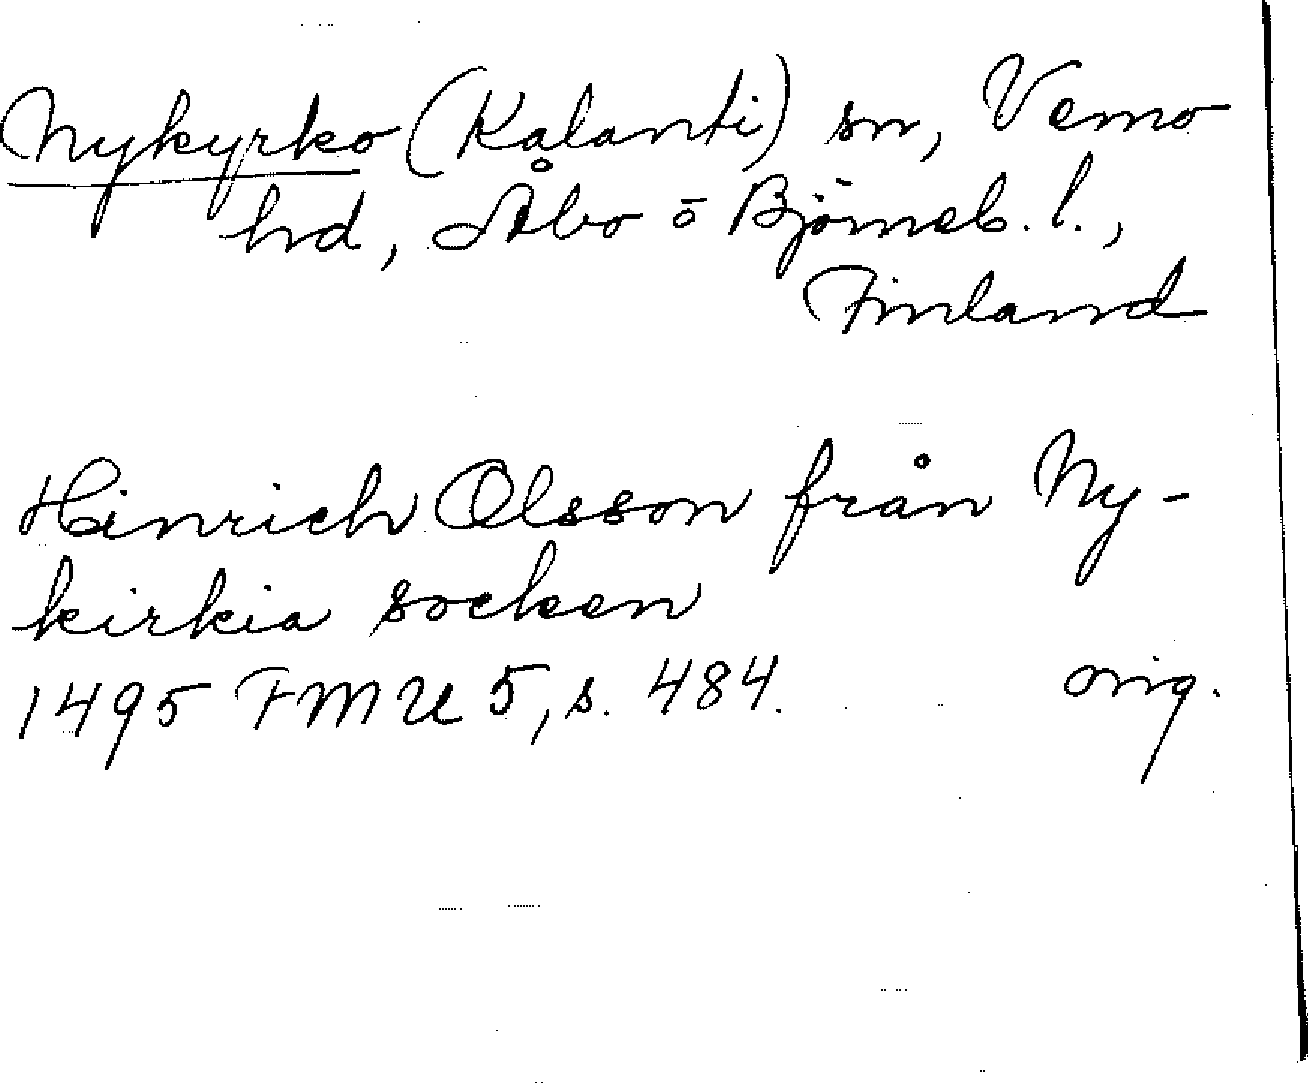 Nykyrko (Kalanti) sn, Vemo
hd, Åbo o Björneb. l.,
Finland
Hinrich Olsson från Ny-
kirkia socken
1495 FMU 5, s. 484. orig.